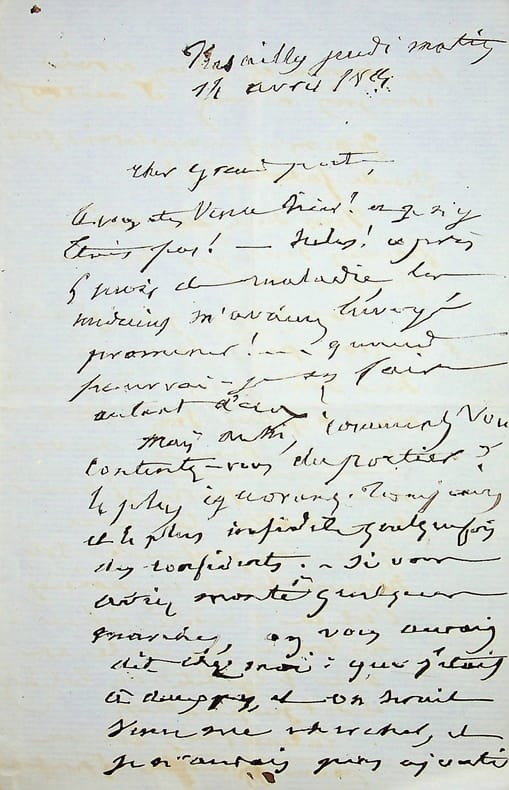 jeudi matin
14 avril
cher grand poète,
Vous êtes venu hier! et je n'y
étais pas! — hélas! après
5 mois de maladie, les
médecins m'avaient envoyé
promener! — quand
pourrai-je en faire
autant d'eux!
Mais aussi, comment vous
contentez-vous du portier?
le plus ignorant toujours
et le plus infidèle quelquefois
des confidents. — Si vous
aviez monté quelques
marches, on vous aurait
dit chez moi: que j'étais
à et on serait
venu me chercher, et
je n'aurais pas ajouté